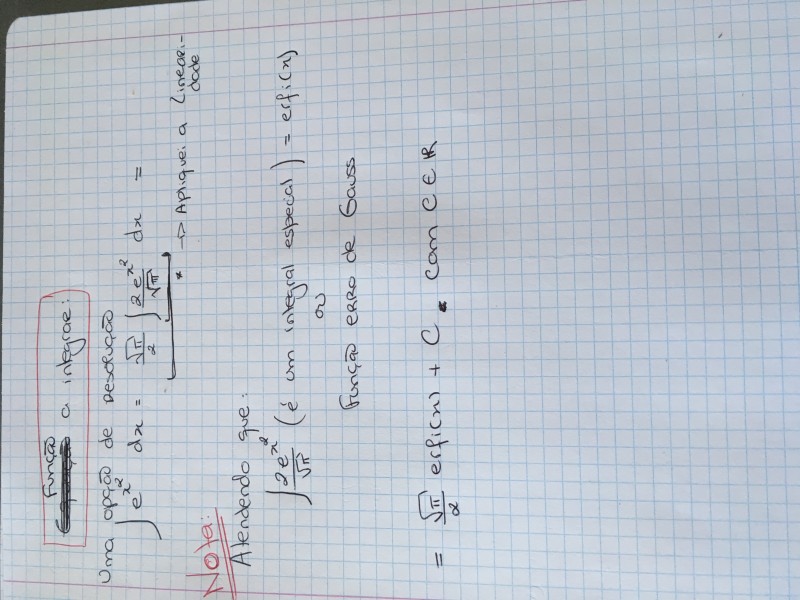 Função
a integrar:
Uma opção de resolução
∫ e^x² dx = √π/2 ∫ 2e^x²/√π dx =
* → Apliquei a Lineari-
dade
Nota:
Atendendo que:
∫ 2e^x²/√π (é um integral especial) = erfi(x)
ou
função erro de Gauss
= √π/2 erfi(x) + C, com C ∈ ℝ